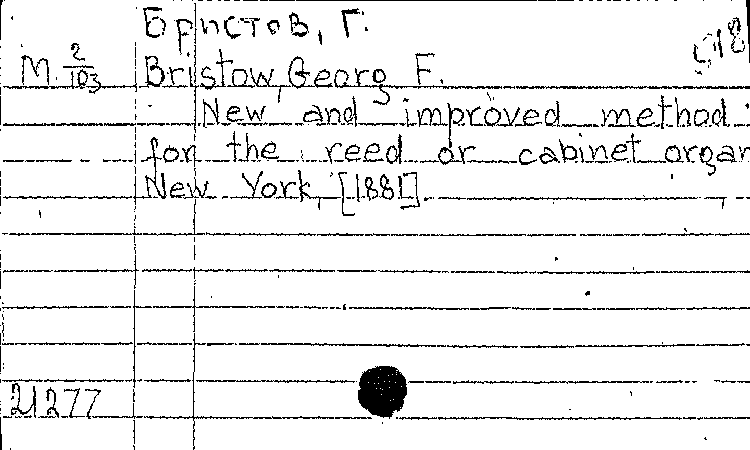 Бристов, Г.
М. 2/103 Bristow, Georg F.
New and improved method
for the reed or cabinet organ
New York, [1881].
21277